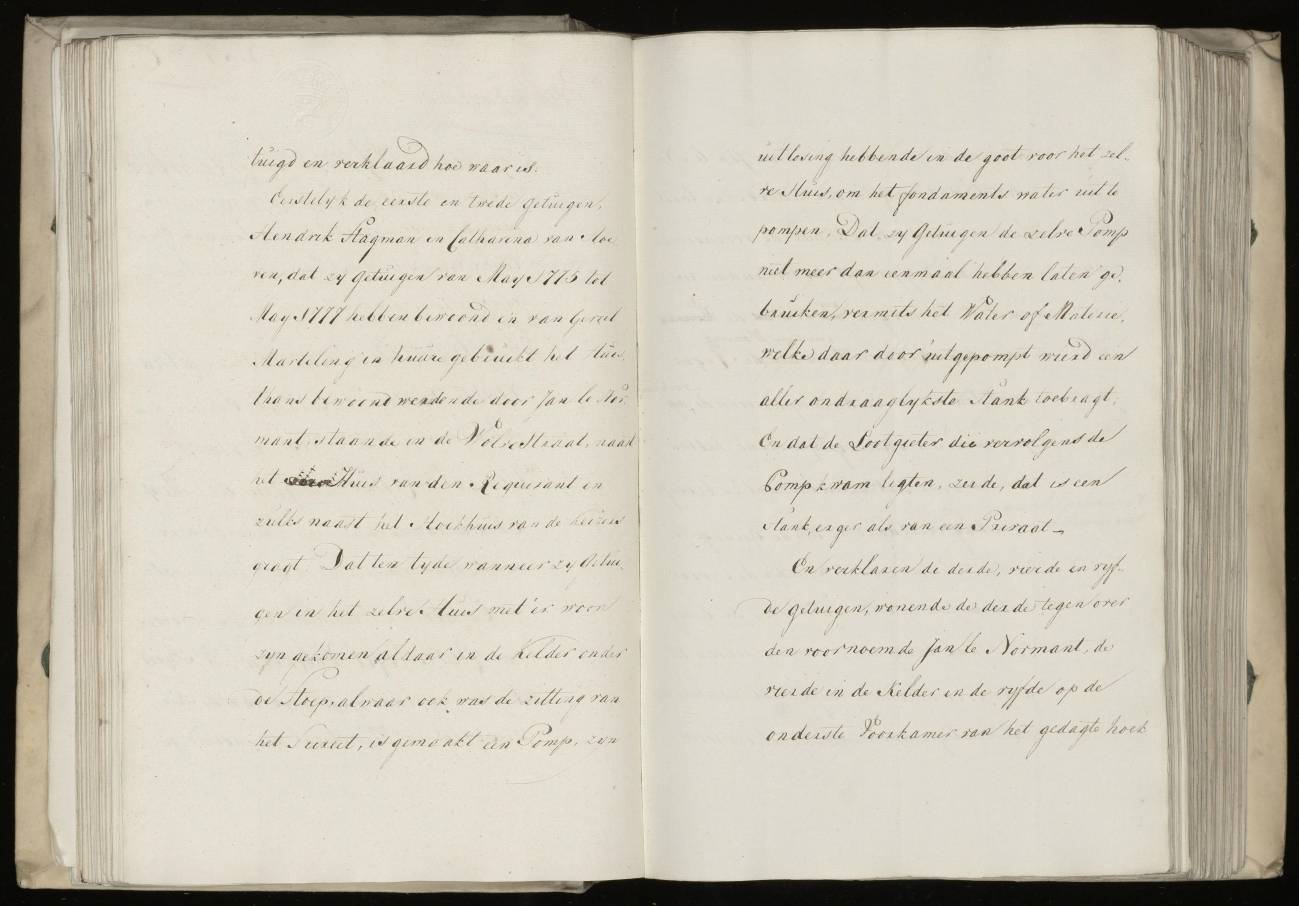 tuigd en verklaard hoe waar is.
Eerstelyk de eerste en twede getuigen,
Hendrik Hagman en Catharina van Hoe
ven, dat zy getuigen van May 1775 tot
May 1777 hebben bewoond en van Gerrit
Marteling in huure gebruikt het Huis,
thans bewoond werdende door Jan le Nor
mant, staande in de Wolvestraat, naast
het Huis van den Requirant en
zulks naast het Hoekhuis van de Keizers
gragt. Dat ten tyde wanneer zy Getui
gen in het zelve Huis met 'er woon
zyn gekomen aldaar in de kelder onder
de Stoep, alwaar ook was de zitting van
het Secreet, is gemaakt een Pomp, zyn
uitlosing hebbende in de goot voor het zel„
ve Huis, om het fondaments water uit te
pompen. Dat zy Getuigen de zelve Pomp
niet meer dan eenmaal hebben laten ge„
bruiken, vermits het Water of Materie,
welke daar door uitgepompt wierd een
aller ondraaglykste Stank toebragt.
En dat de Lootgieter die vervolgens de
Pomp kwam ligten, zeide, dat is een
Stank, erger als van een Privaat —
En verklaren de derde, vierde en vyf„
de getuigen, wonende de derde tegen over
den voornoemde Jan le Normant, de
vierde in de Kelder en de vyfde op de
onderste Voorkamer van het gedagte hoek